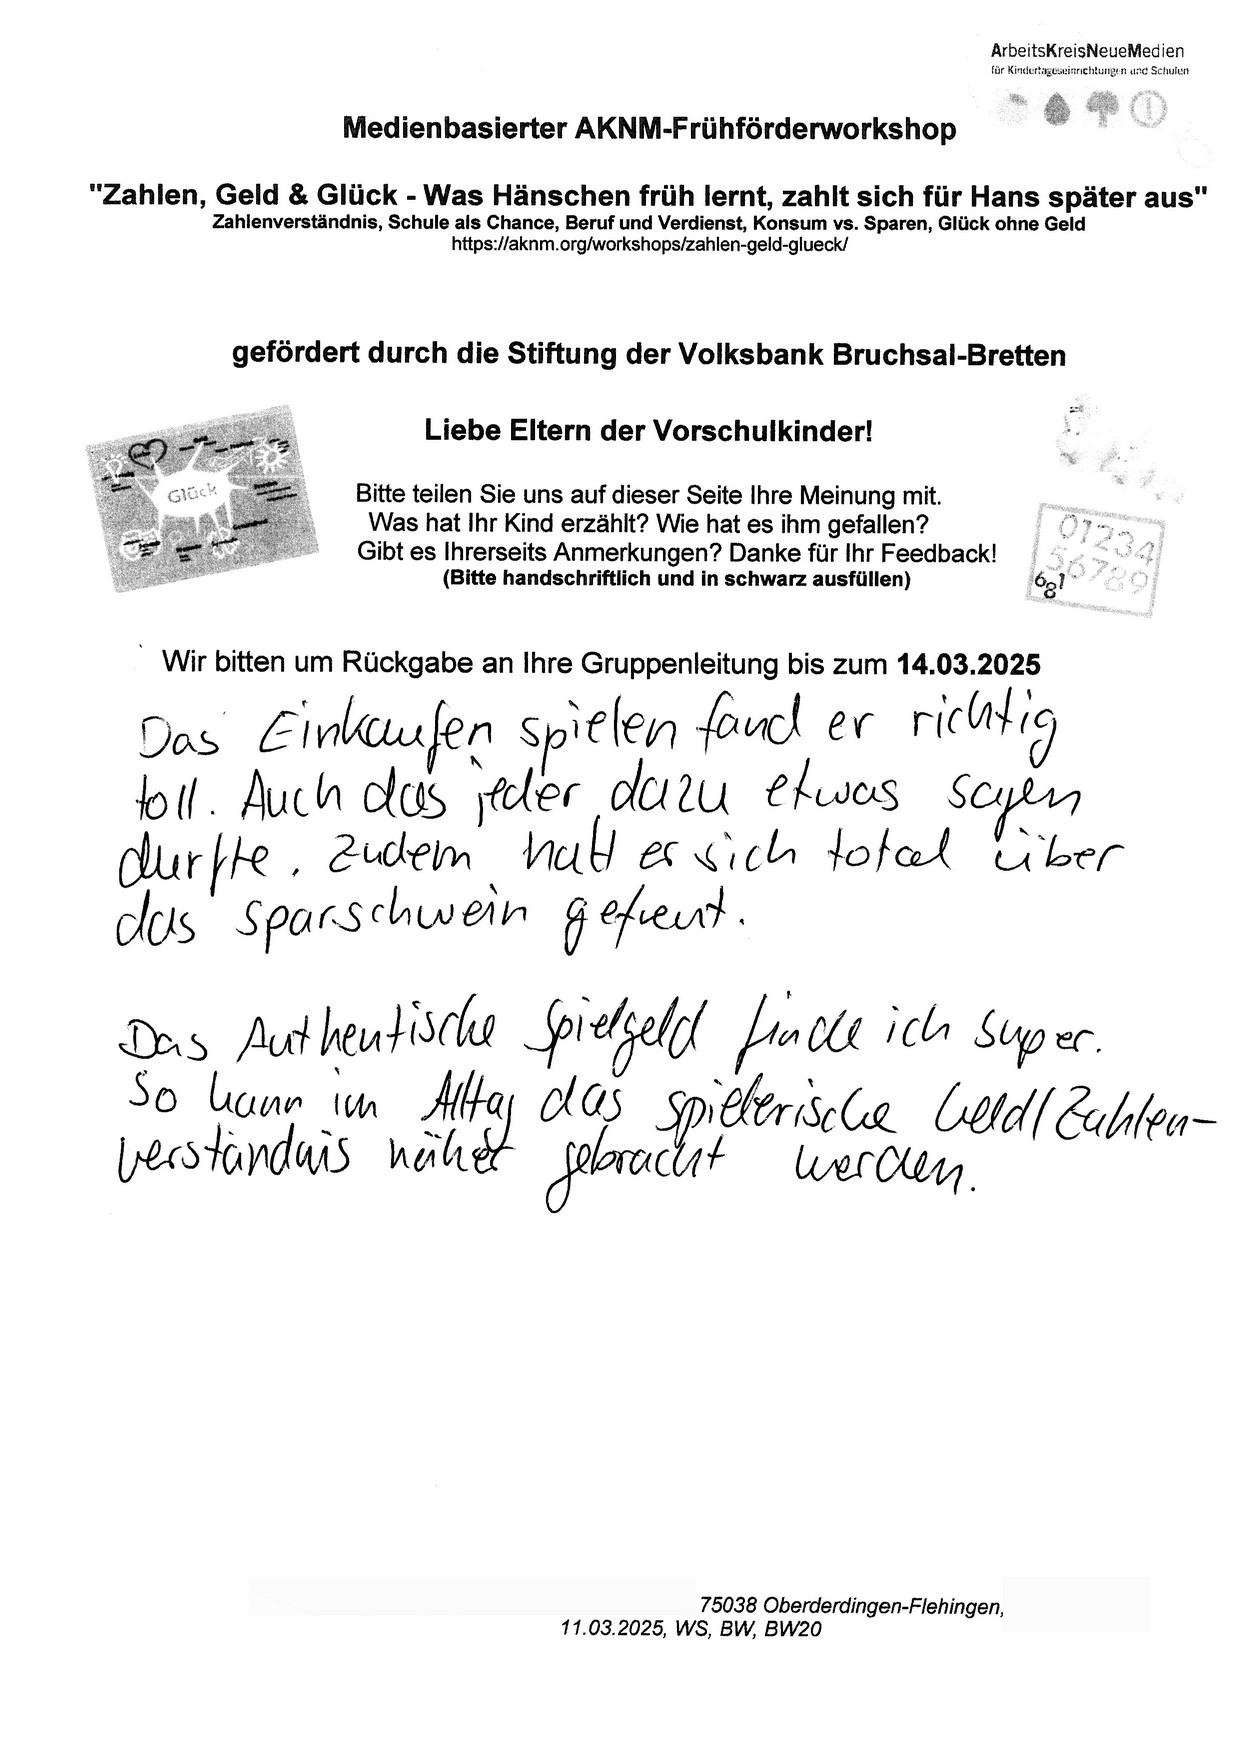 ArbeitsKreisNeueMedien
für Kindertageseinrichtungen und Schulen
Medienbasierter AKNM-Frühförderworkshop
"Zahlen, Geld & Glück - Was Hänschen früh lernt, zahlt sich für Hans später aus"
Zahlenverständnis, Schule als Chance, Beruf und Verdienst, Konsum vs. Sparen, Glück ohne Geld
https://aknm.org/workshops/zahlen-geld-glueck/
gefördert durch die Stiftung der Volksbank Bruchsal-Bretten
Liebe Eltern der Vorschulkinder!
Glück
Bitte teilen Sie uns auf dieser Seite Ihre Meinung mit.
Was hat Ihr Kind erzählt? Wie hat es ihm gefallen?
Gibt es Ihrerseits Anmerkungen? Danke für Ihr Feedback!
(Bitte handschriftlich und in schwarz ausfüllen)
01234
56789
681
Wir bitten um Rückgabe an Ihre Gruppenleitung bis zum 14.03.2025
Das Einkaufen spielen fand er richtig
toll. Auch das jeder dazu etwas sagen
durfte. Zudem hatt er sich total über
das sparschwein gefreut.
Das Authentische Spielgeld finde ich super.
So kann im Alltag das spielerische Geld/Zahlen-
verständnis näher gebracht werden.
75038 Oberderdingen-Flehingen,
11.03.2025, WS, BW, BW20